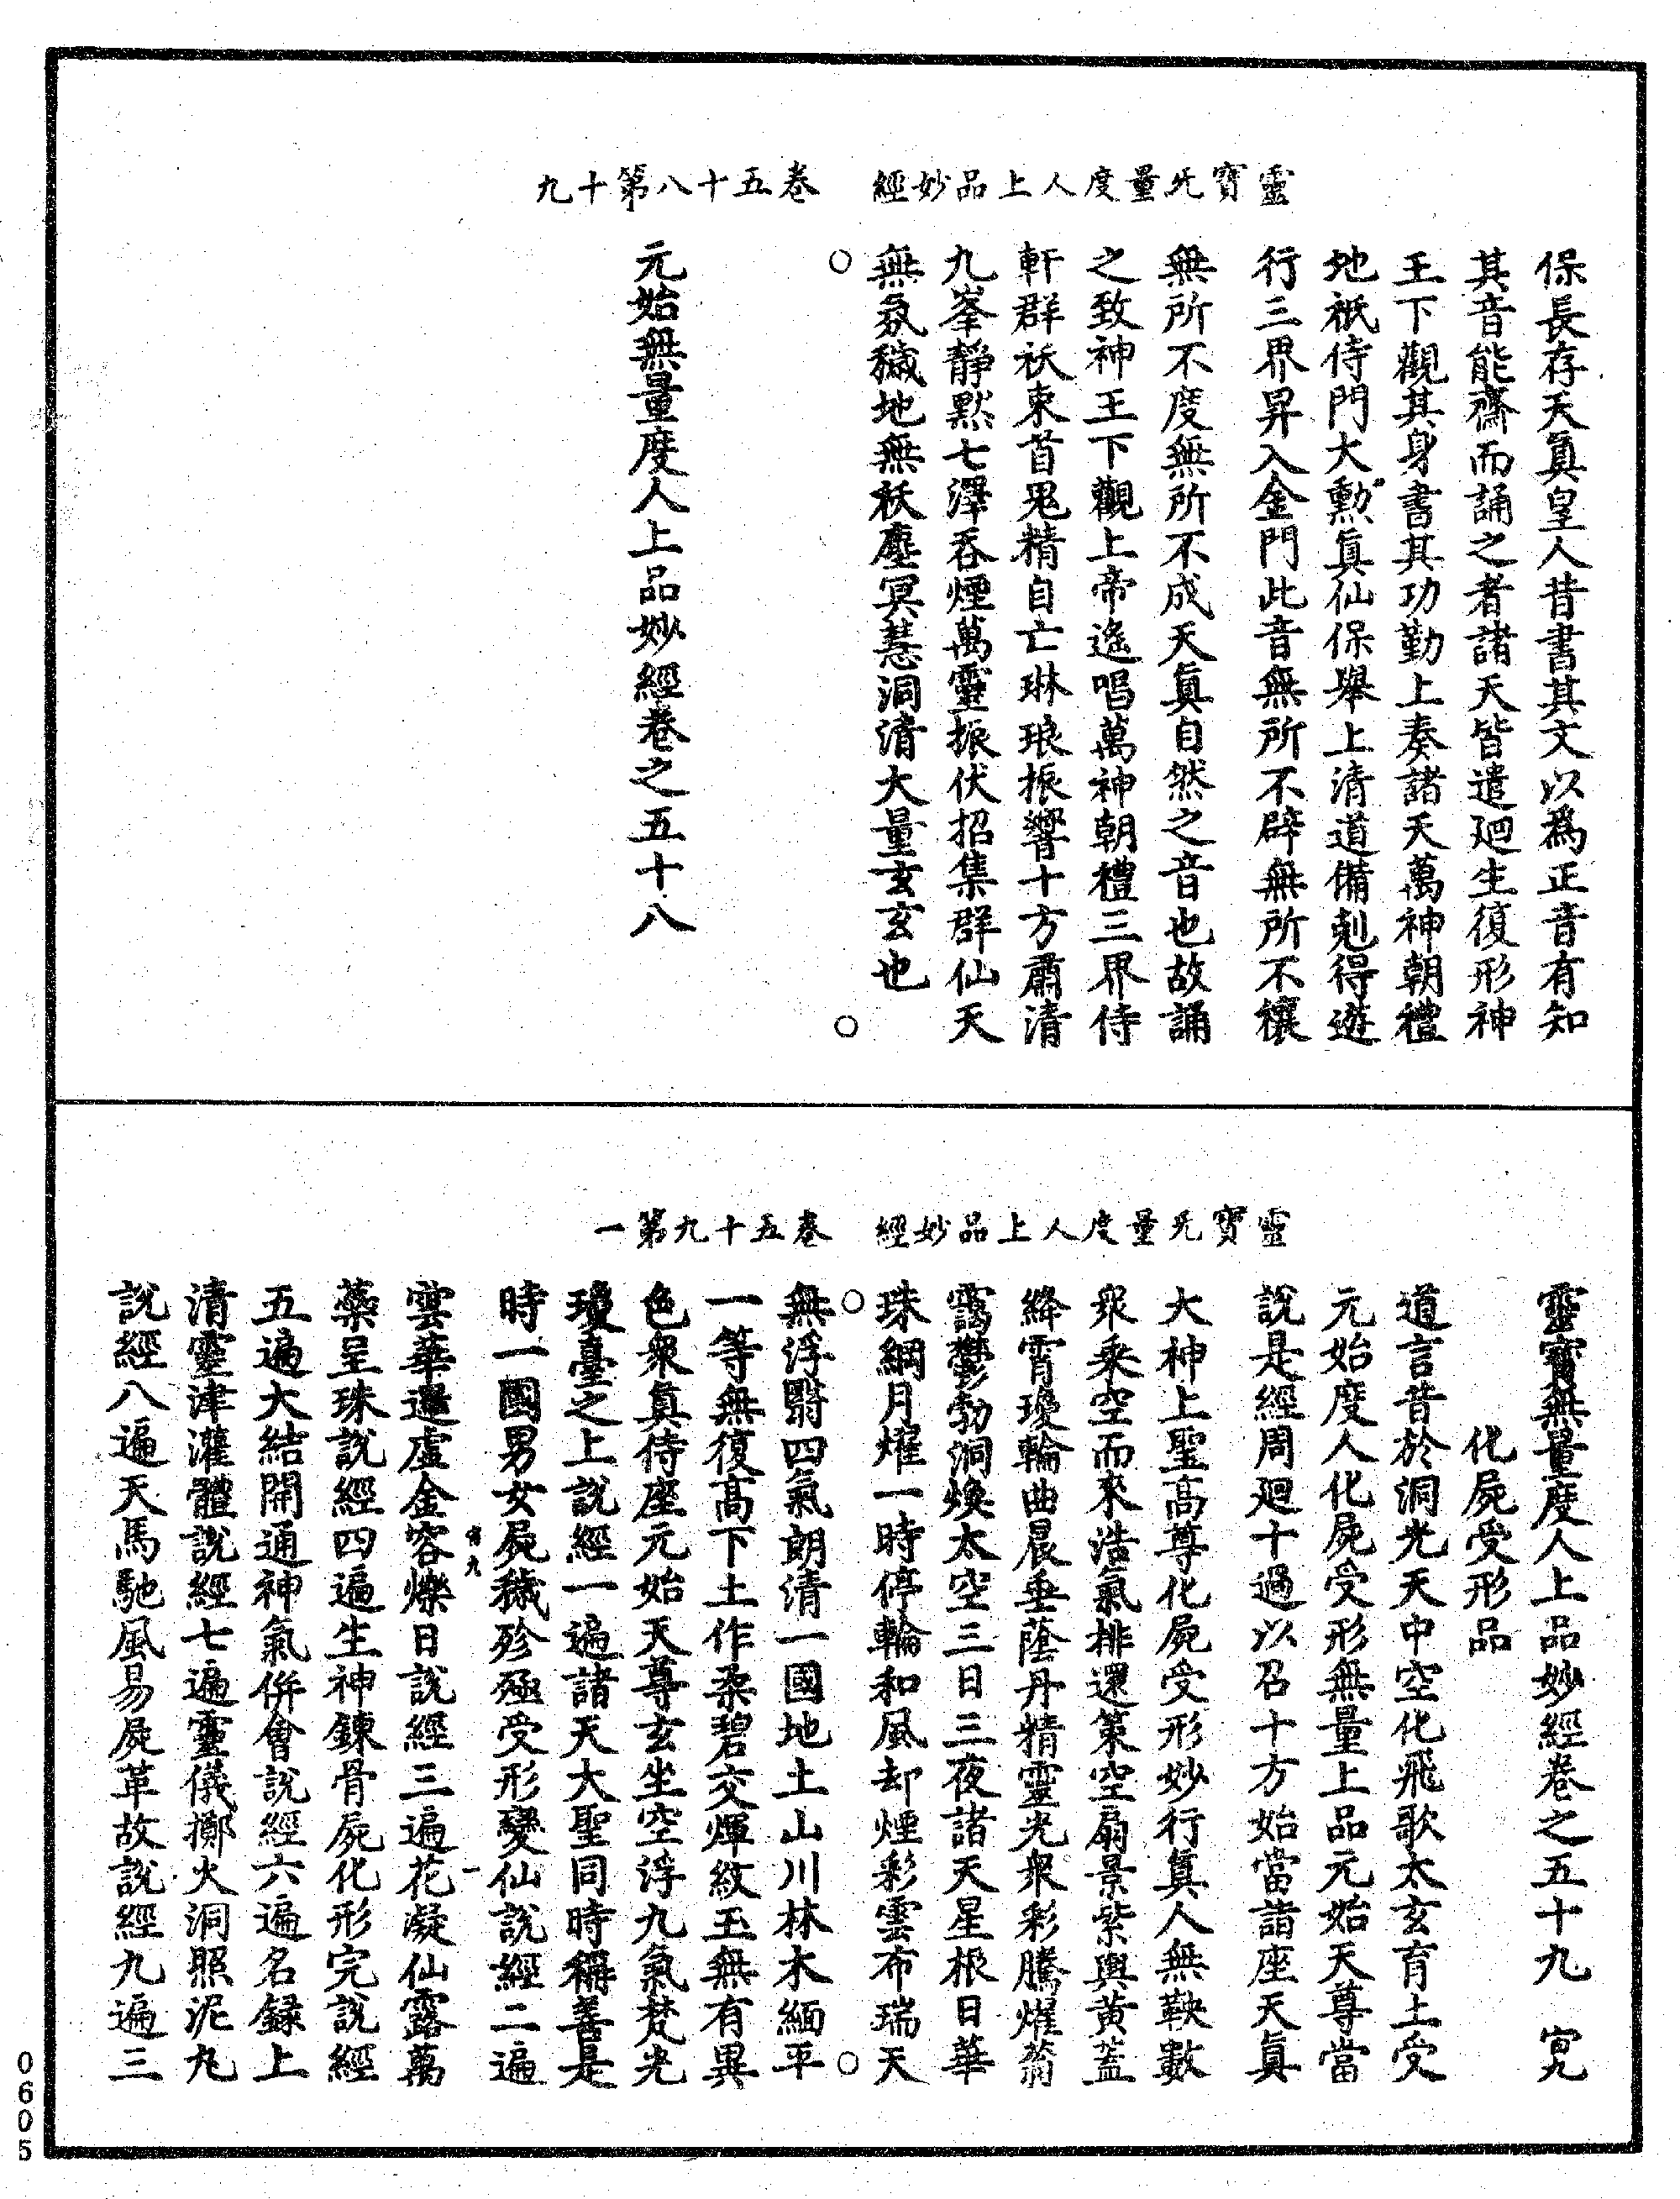 靈寶无量度人上品妙經　卷五十八第十九
保長存天眞皇人昔書其文以爲正音有知
其音能齋而誦之者諸天皆遣迴生復形神
王下觀其身書其功勤上奏諸天萬神朝禮
地祇侍門大勲眞仙保舉上清道備剋得遊
行三界昇入金門此音無所不辟無所不禳
無所不度無所不成天眞自然之音也故誦
之致神王下觀上帝遙唱萬神朝禮三界侍
軒群祅束首鬼精自亡琳琅振響十方肅清
九峯靜默七澤吞煙萬靈振伏招集群仙天
無氛穢地無祅塵冥慧洞清大量玄玄也
元始無量度人上品妙經卷之五十八
靈寶无量度人上品妙經　卷五十九第一
靈寶無量度人上品妙經卷之五十九　宙九
化屍受形品
道言昔於洞光天中空化飛歌太玄育上受
元始度人化屍受形無量上品元始天尊當
說是經周迴十過以召十方始當詣座天眞
大神上聖高尊化屍受形妙行眞人無鞅數
衆乘空而來浩氣排還策空扇景紫輿黃蓋
絳霄瓊輪曲晨垂蔭丹精靈光衆彩騰燿蓊
靄鬱勃洞煥太空三日三夜諸天星根日華
珠綱月燿一時停輪和風却煙彩雲布瑞天
無浮翳四氣朗清一國地土山川林木緬平
一等無復高下土作柔碧交煇紋玉無有異
色衆眞侍座元始天尊玄坐空浮九氣梵光
瓊臺之上說經一遍諸天大聖同時稱善是
時一國男女屍穢殄殛受形變仙說經二遍
宙九　一
雲華還虛金容爍日說經三遍花凝仙露萬
藥呈珠說經四遍生神鍊骨屍化形完說經
五遍大結開通神氣併會說經六遍名録上
清靈津灌體說經七遍靈儀擲火洞照泥丸
說經八遍天馬馳風易屍革故說經九遍三
0605